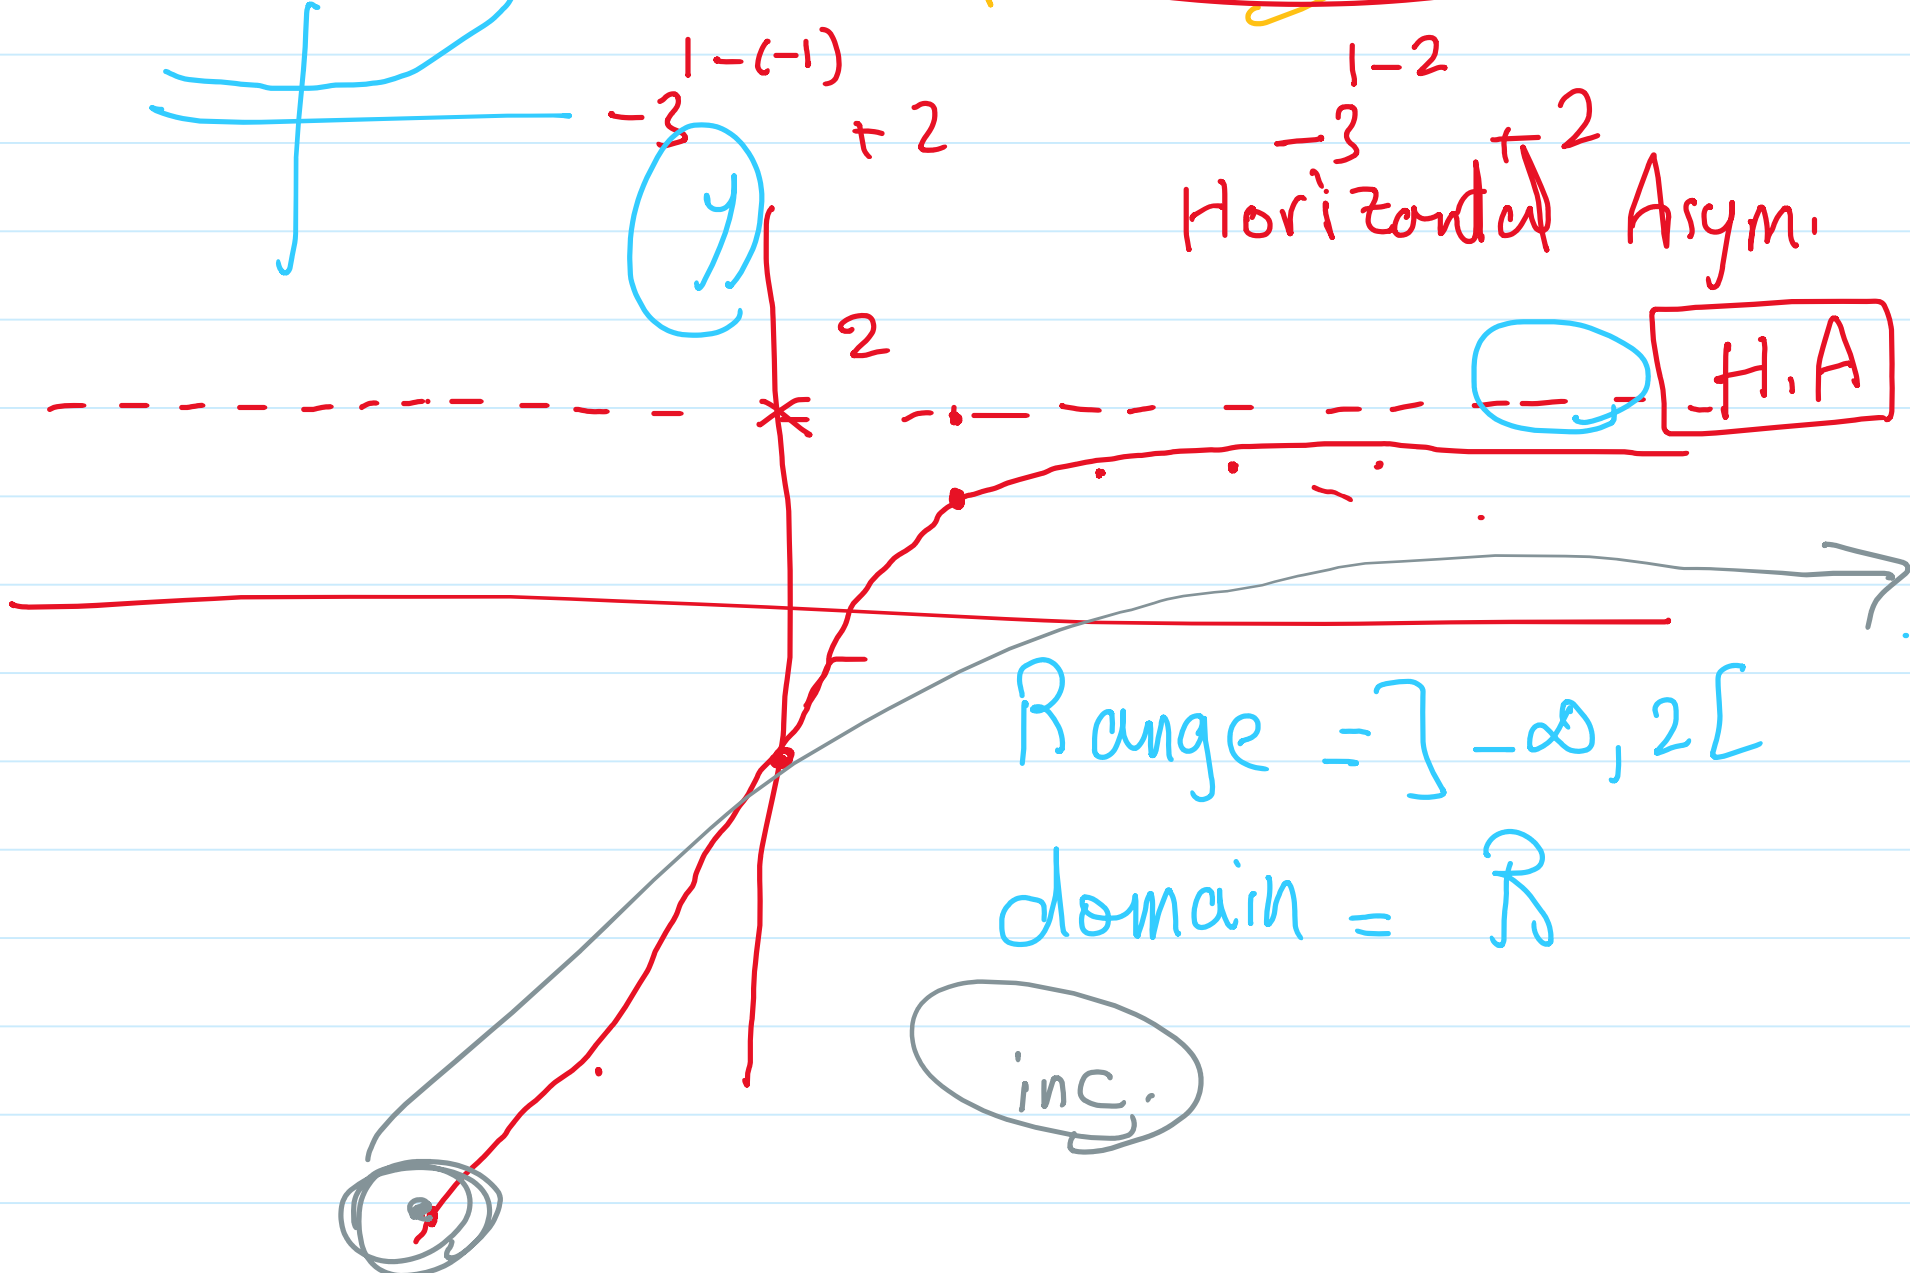 1-(-1)
-3 +2
1-2
-3 +2
y
Horizontal Asym.
2
H.A
Range = ]-∞,2[
domain = R
inc.